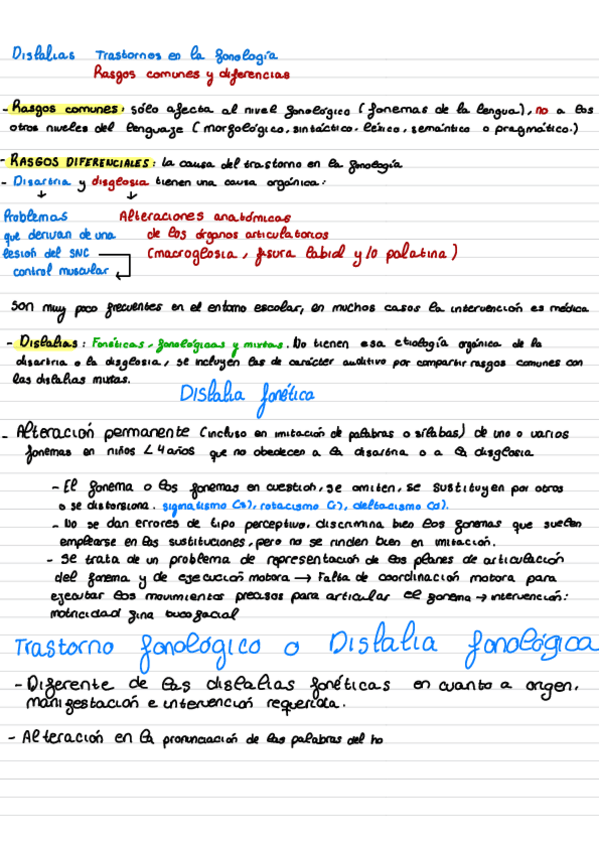 Dislalias Trastornos en la fonología
Rasgos comunes y diferencias
- Rasgos comunes: sólo afecta al nivel fonológico (fonemas de la lengua), no a los
otros niveles del lenguaje (morfológico, sintáctico, léxico, semántico o pragmático.)
- RASGOS DIFERENCIALES: la causa del trastorno en la fonología
- Disartria y disglosia tienen una causa orgánica:
↓ ↓
Problemas Alteraciones anatómicas
que derivan de una de los órganos articulatorios
lesión del SNC (macroglosia, fisura labial y/o palatina)
control muscular
Son muy poco frecuentes en el entorno escolar, en muchos casos la intervención es médica
- Dislalias: Fonéticas, fonológicas y mixtas. No tienen esa etiología orgánica de la
disartria o la disglosia, se incluyen las de carácter auditivo por compartir rasgos comunes con
las dislalias mixtas.
Dislalia fonética
- Alteración permanente (incluso en imitación de palabras o sílabas) de uno o varios
fonemas en niños < 4 años que no obedecen a la disartria o a la disglosia
- El fonema o los fonemas en cuestión, se omiten, se sustituyen por otros
o se distorsiona. sigmatismo (s), rotacismo (r), deltacismo (d).
- No se dan errores de tipo perceptivo, discrimina bien los fonemas que suelen
emplearse en las sustituciones, pero no se rinden bien en imitación.
- Se trata de un problema de representación de los planes de articulación
del fonema y de ejecución motora → Falta de coordinación motora para
ejecutar los movimientos precisos para articular el fonema → intervención:
motricidad fina bucofacial
Trastorno fonológico o Dislalia fonológica
- Diferente de las dislalias fonéticas en cuanto a origen,
manifestación e intervención requerida.
- Alteración en la pronunciación de las palabras del ho